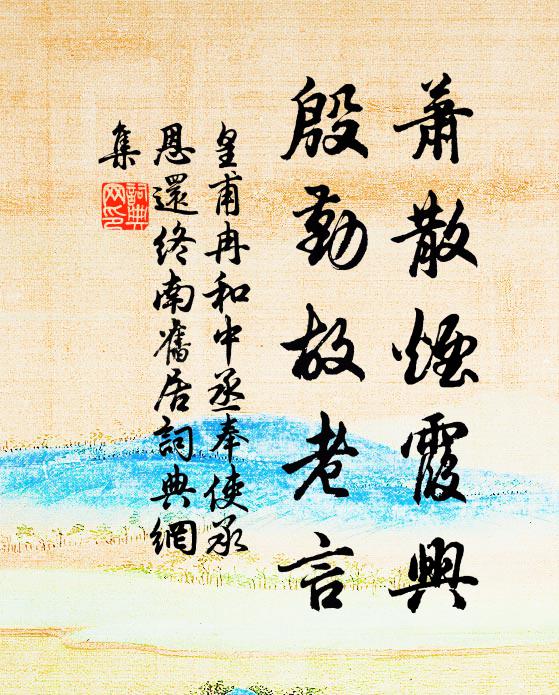 蕭散煙霞興
殷勤故老言
皇甫冉和中丞奉使承
恩還終南舊居詞典網
集
詞典
网印